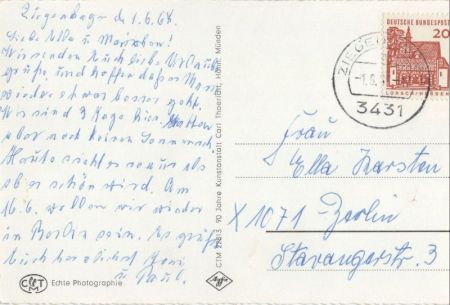 Ziegenhagen d. 1.6.67.
Liebe Ella u. Mariechen!
Wir senden Euch liebe Urlaubs
grüße und hoffen daß es Marie
wieder etwas besser geht.
Wir sind 3 Tage hier. Hatten
aber noch keinen Sonnensch.
Heute sieht es aus als
ob es schön wird. Am
16.6. wollen wir wieder
in Berlin sein. Es grüßt
Euch herzlichst
u. Paul.
CMT Echte Photographie
CTM 228/3 90 Jahre Kunstanstalt Carl Thoericht, Hann. Münden
Agfa
DEUTSCHE BUNDESPOST
20
LORSCH/HESSEN
3431
Frau
Ella Karsten
X 1071 - Berlin
Stavangerstr. 3